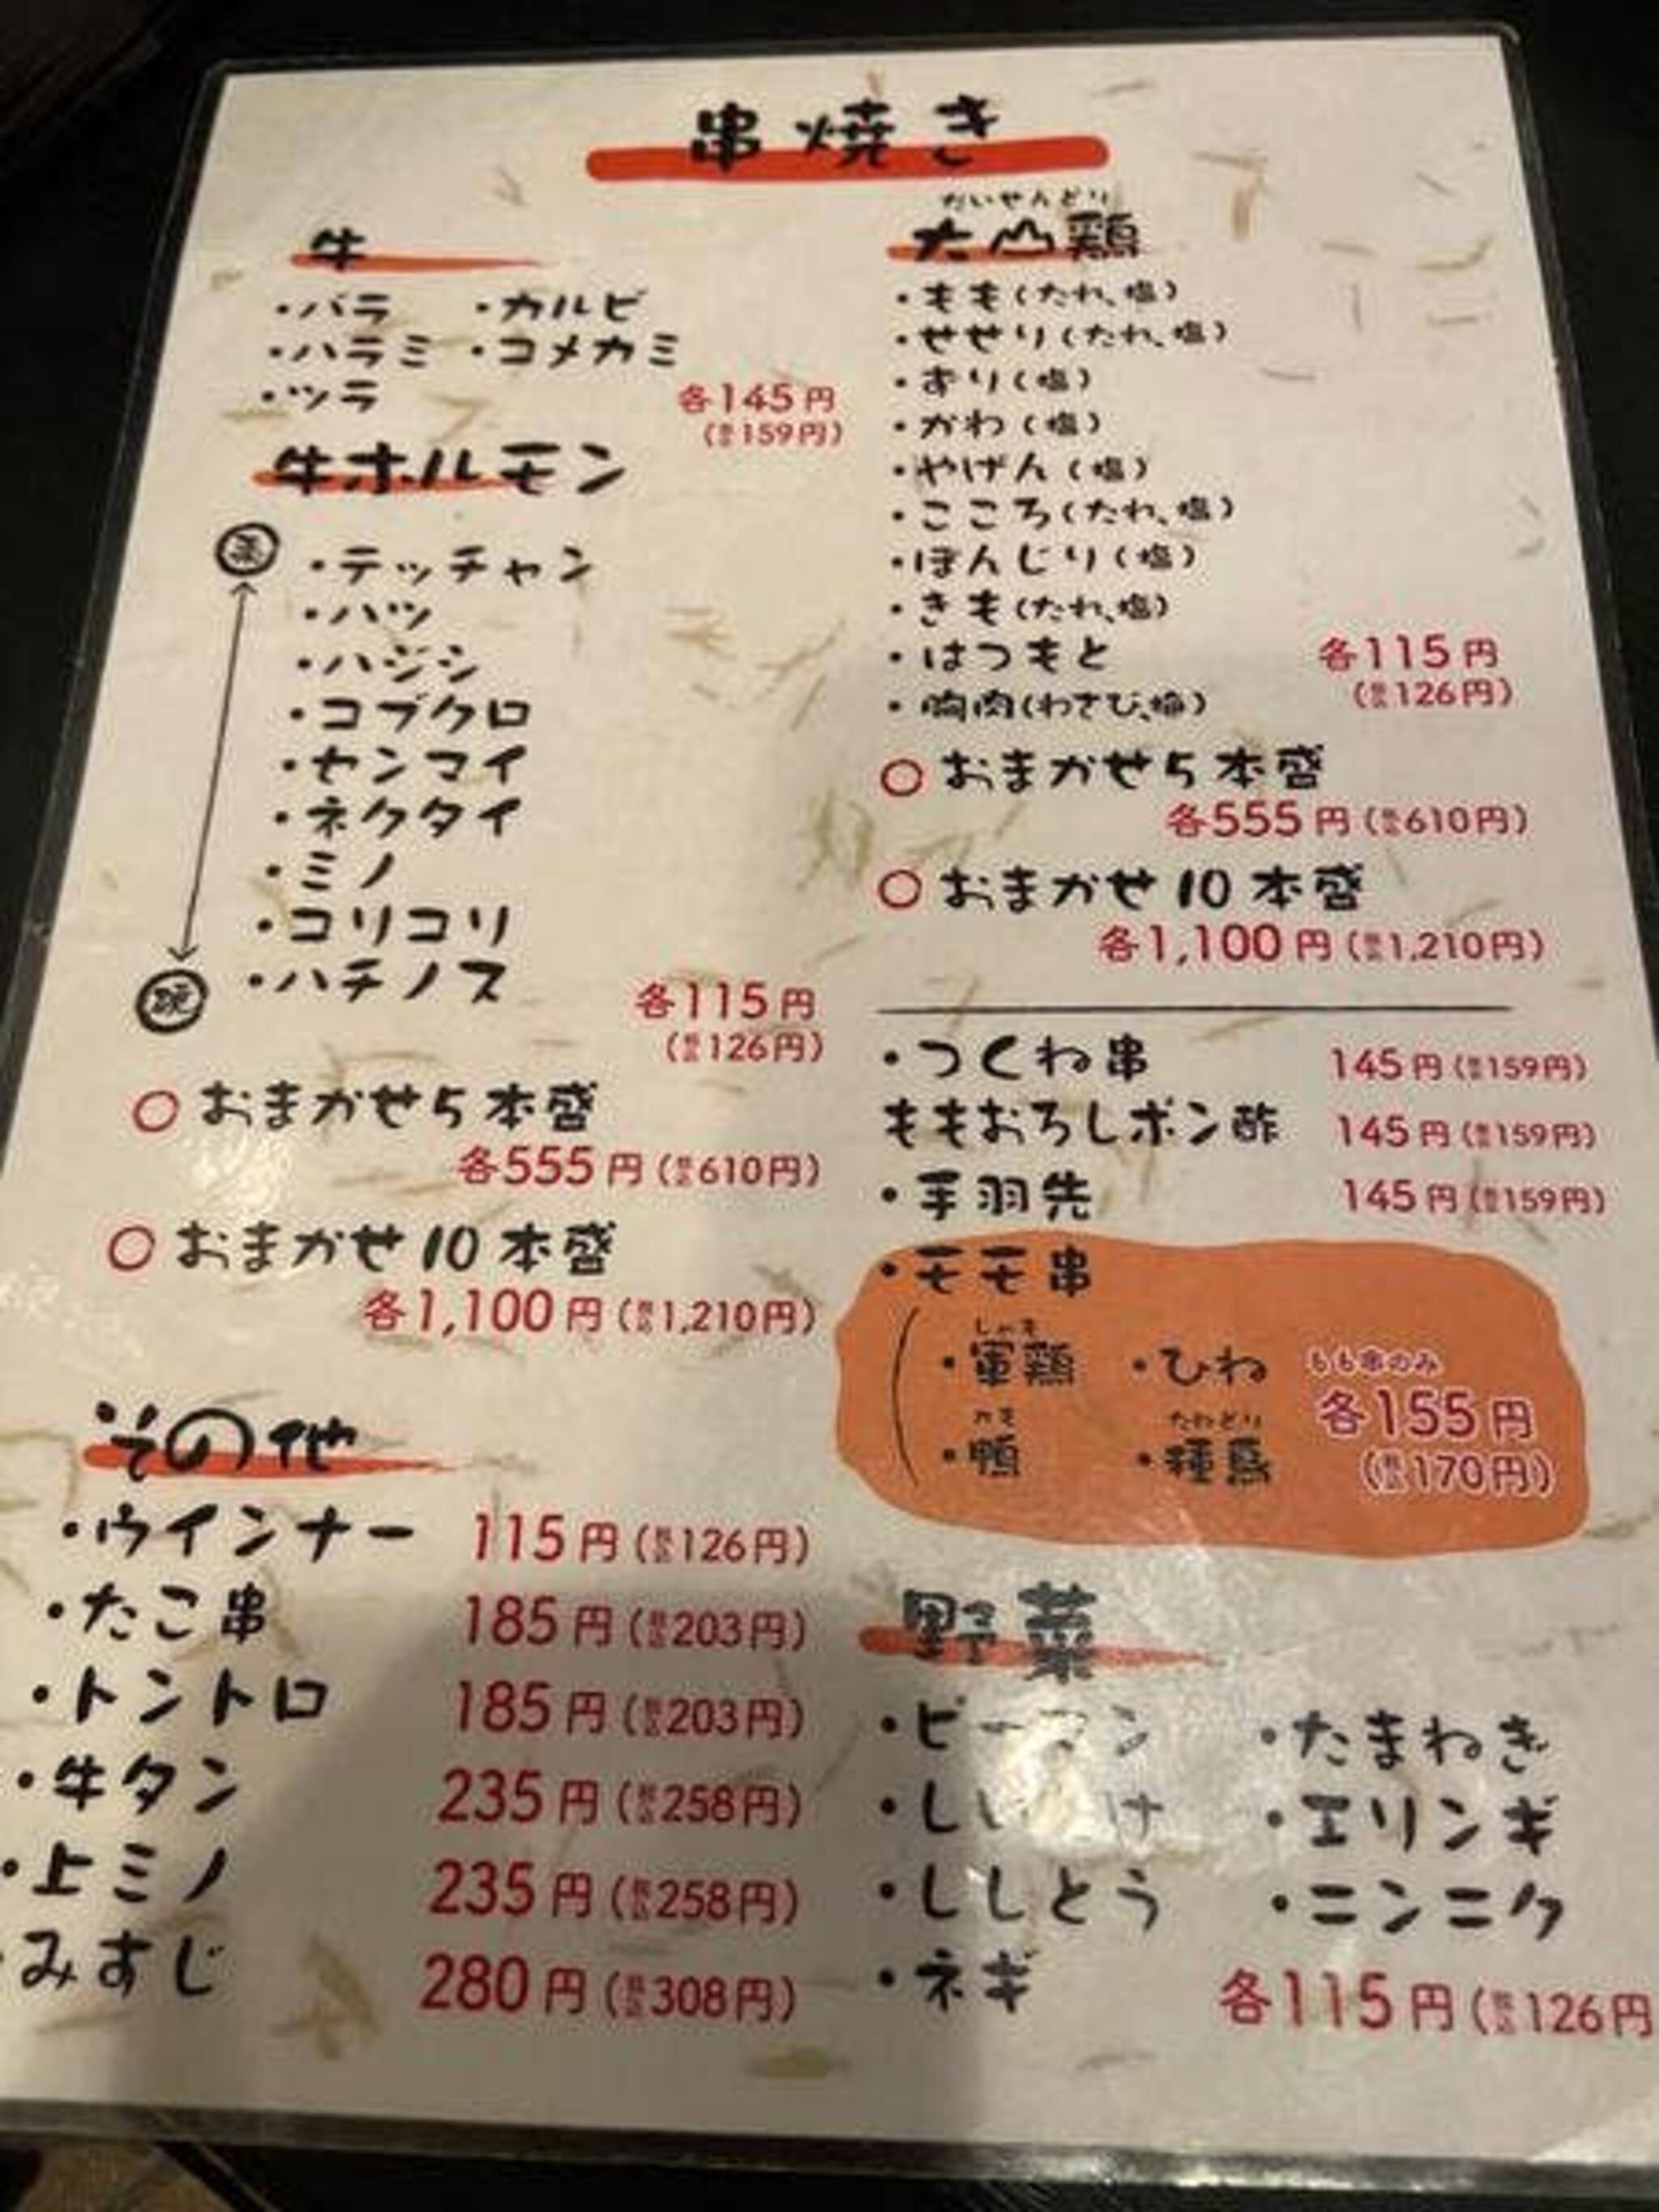 串焼き
牛
・バラ ・カルビ
・ハラミ ・コメカミ
・ツラ
各145円
(税込159円)
牛ホルモン
・テッチャン
・ハツ
・ハジシ
・コブクロ
・センマイ
・ネクタイ
・ミノ
・コリコリ
・ハチノス
各115円
(税込126円)
○おまかせ5本盛
各555円(税込610円)
○おまかせ10本盛
各1,100円(税込1,210円)
その他
・ウインナー 115円(税込126円)
・たこ串 185円(税込203円)
・トントロ 185円(税込203円)
・牛タン 235円(税込258円)
・上ミノ 235円(税込258円)
・みすじ 280円(税込308円)
だいせんどり
大山鶏
・もも(たれ、塩)
・せせり(たれ、塩)
・ずり(塩)
・かわ(塩)
・やげん(塩)
・こころ(たれ、塩)
・ぼんじり(塩)
・きも(たれ、塩)
・はつもと
・胸肉(わさび、梅)
各115円
(税込126円)
○おまかせ5本盛
各555円(税込610円)
○おまかせ10本盛
各1,100円(税込1,210円)
・つくね串 145円(税込159円)
ももおろしポン酢 145円(税込159円)
・手羽先 145円(税込159円)
・モモ串
しゃも
・軍鶏 ・ひね
かも たねどり
・鴨 ・種鳥
もも串のみ
各155円
(税込170円)
野菜
・ピーマン ・たまねぎ
・エリンギ
・ししとう ・ニンニク
・ネギ
各115円(税込126円